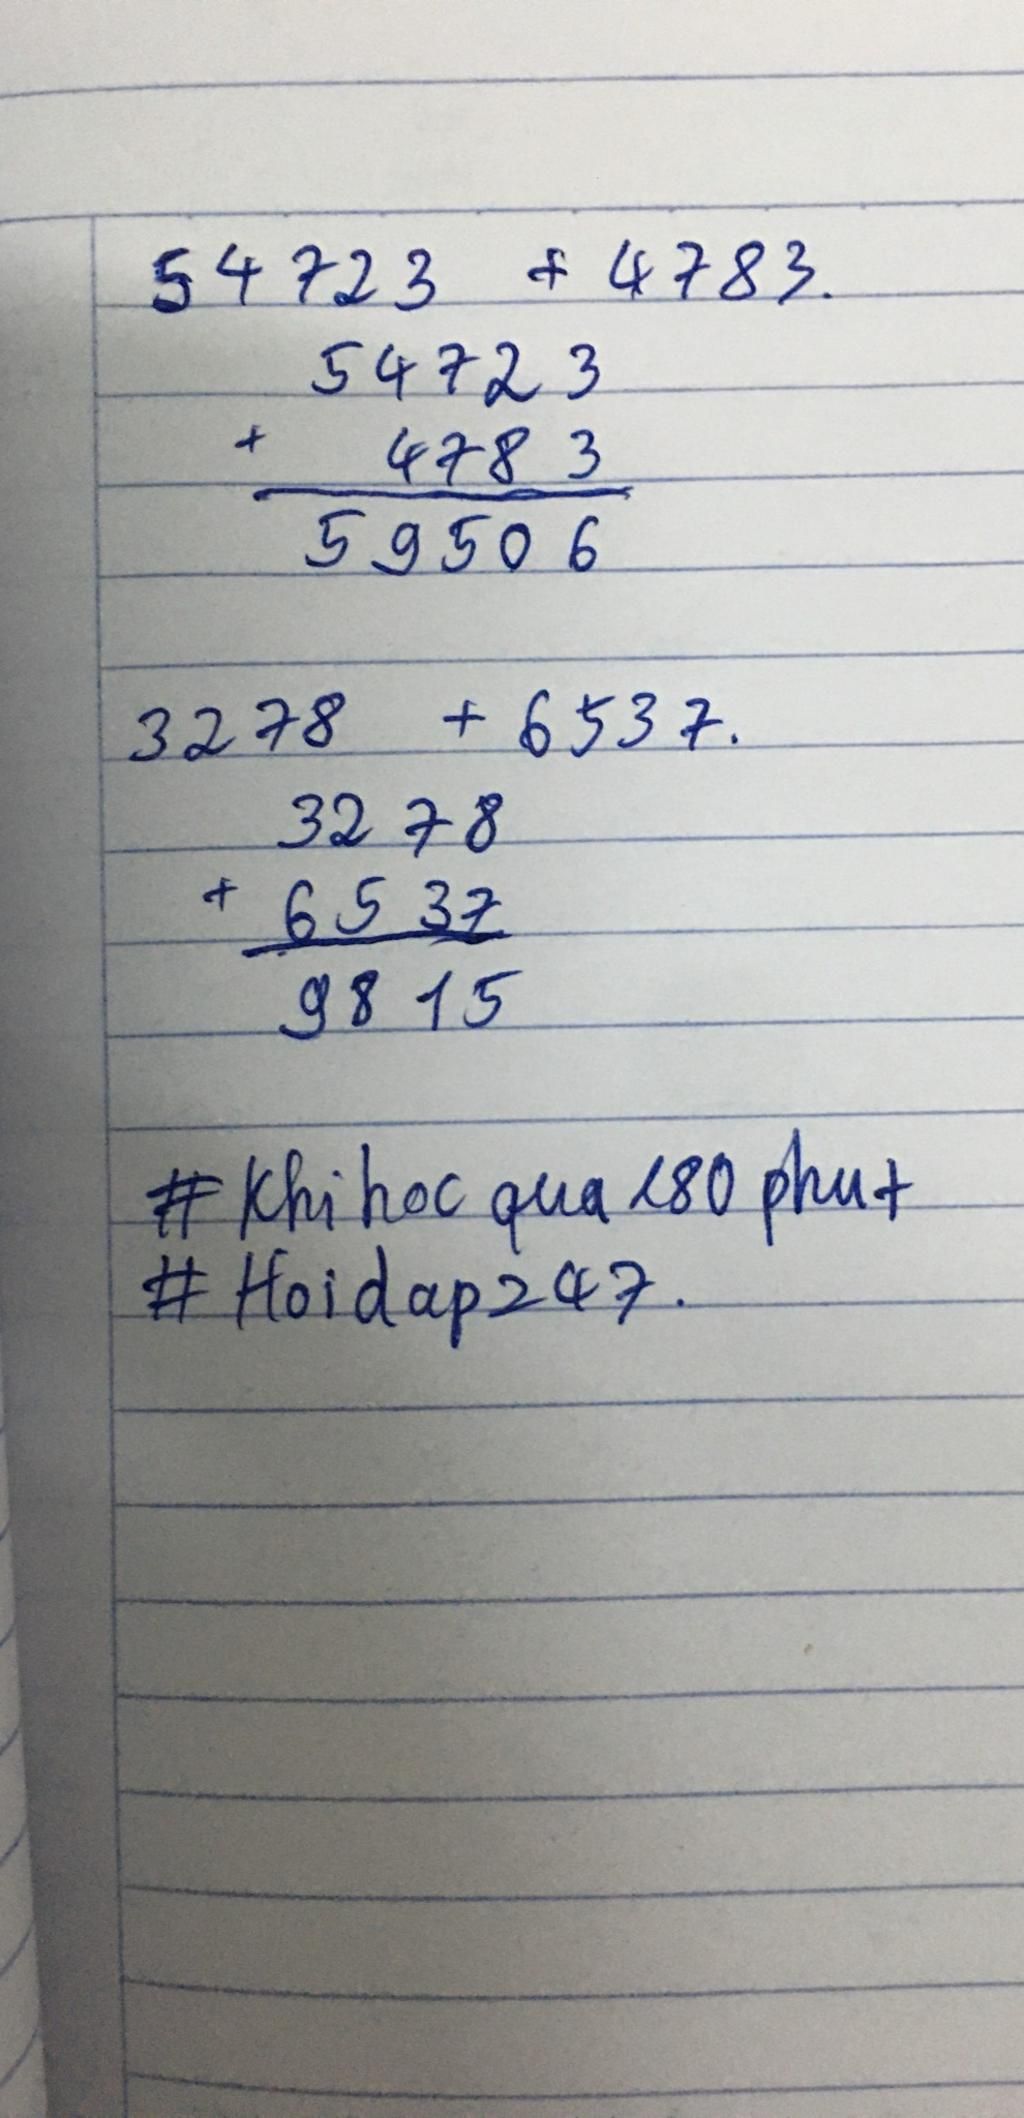 54723 + 4783.
54723
+ 4783
59506
3278 + 6537.
3278
+ 6537
9815
#Khihoc qua 180 phut
#Hoidap247.